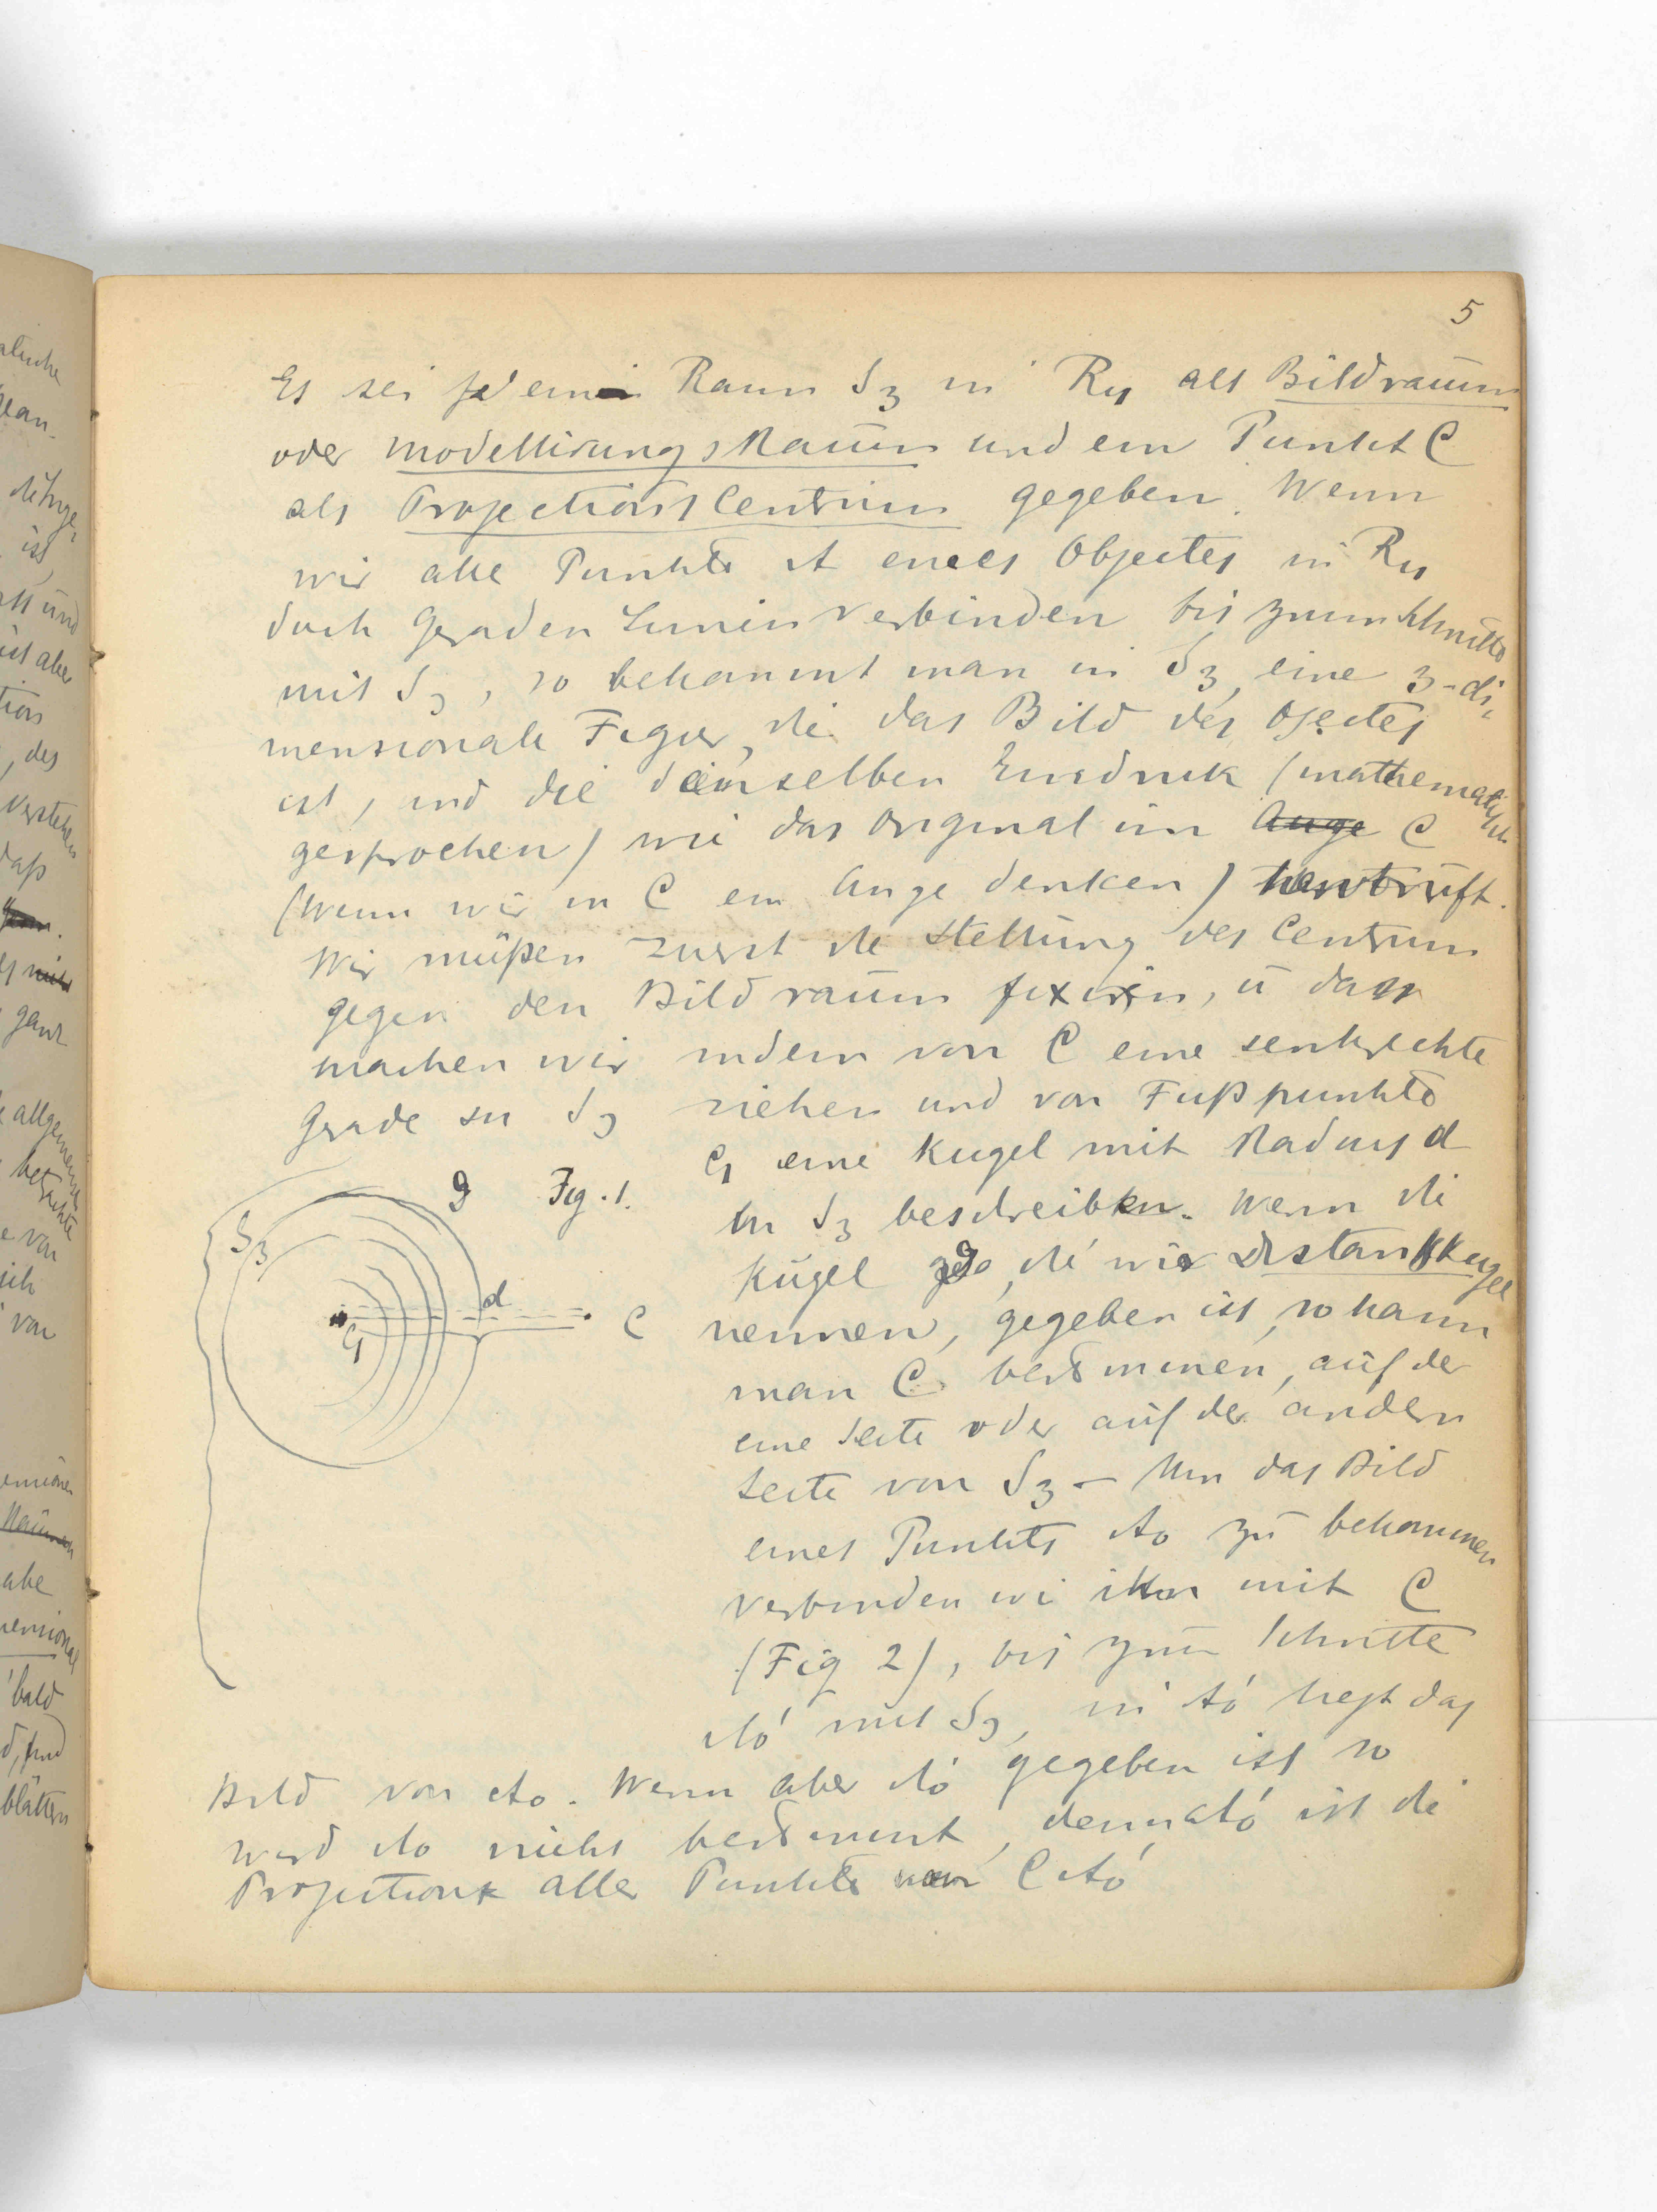 5
Es sei ein Raum S3 in R4 als Bildraum
oder ModellirungsRaum und ein Punkt C
als ProjectionsCentrum gegeben. Wenn
wir alle Punkte A eines Objectes in R4
durch Geraden Linien verbinden bis zum Schnitte
mit S3, so bekommt man in S3, eine 3-di-
mensionale Figur, die das Bild des Ojectes
ist, und die denselben Eindruk (mathematisch
gesprochen) wie das Original im Auge C
(Wenn wir in C ein Auge denken) hervorruft.
Wir müßen zuerst die Stellung des Centrum
gegen den Bildraum fixiren, ü das
machen wir indem von C eine senkrechte
Grade zu S3 ziehen und von Fußpunkte
C1 eine Kugel mit Radius d
in S3 beschreiben. Wenn die
Kugel g, die wir Distanzkugel
nennen, gegeben ist, so kann
man C bestimmen, auf der
eine Seite oder auf der andern
Seite von S3 – Um das Bild
eines Punkts A0 zu bekommen
verbinden wi ihn mit C
(Fig 2), bis zum Schnitte
A0' mit S3, in A0' liegt das
Bild von A0. Wenn aber A0' gegeben ist so
wird A0 nicht bestimmt, denn A0' ist die
Projection aller Punkte von C A0'
g Fig. 1.
S3
d
C
C1